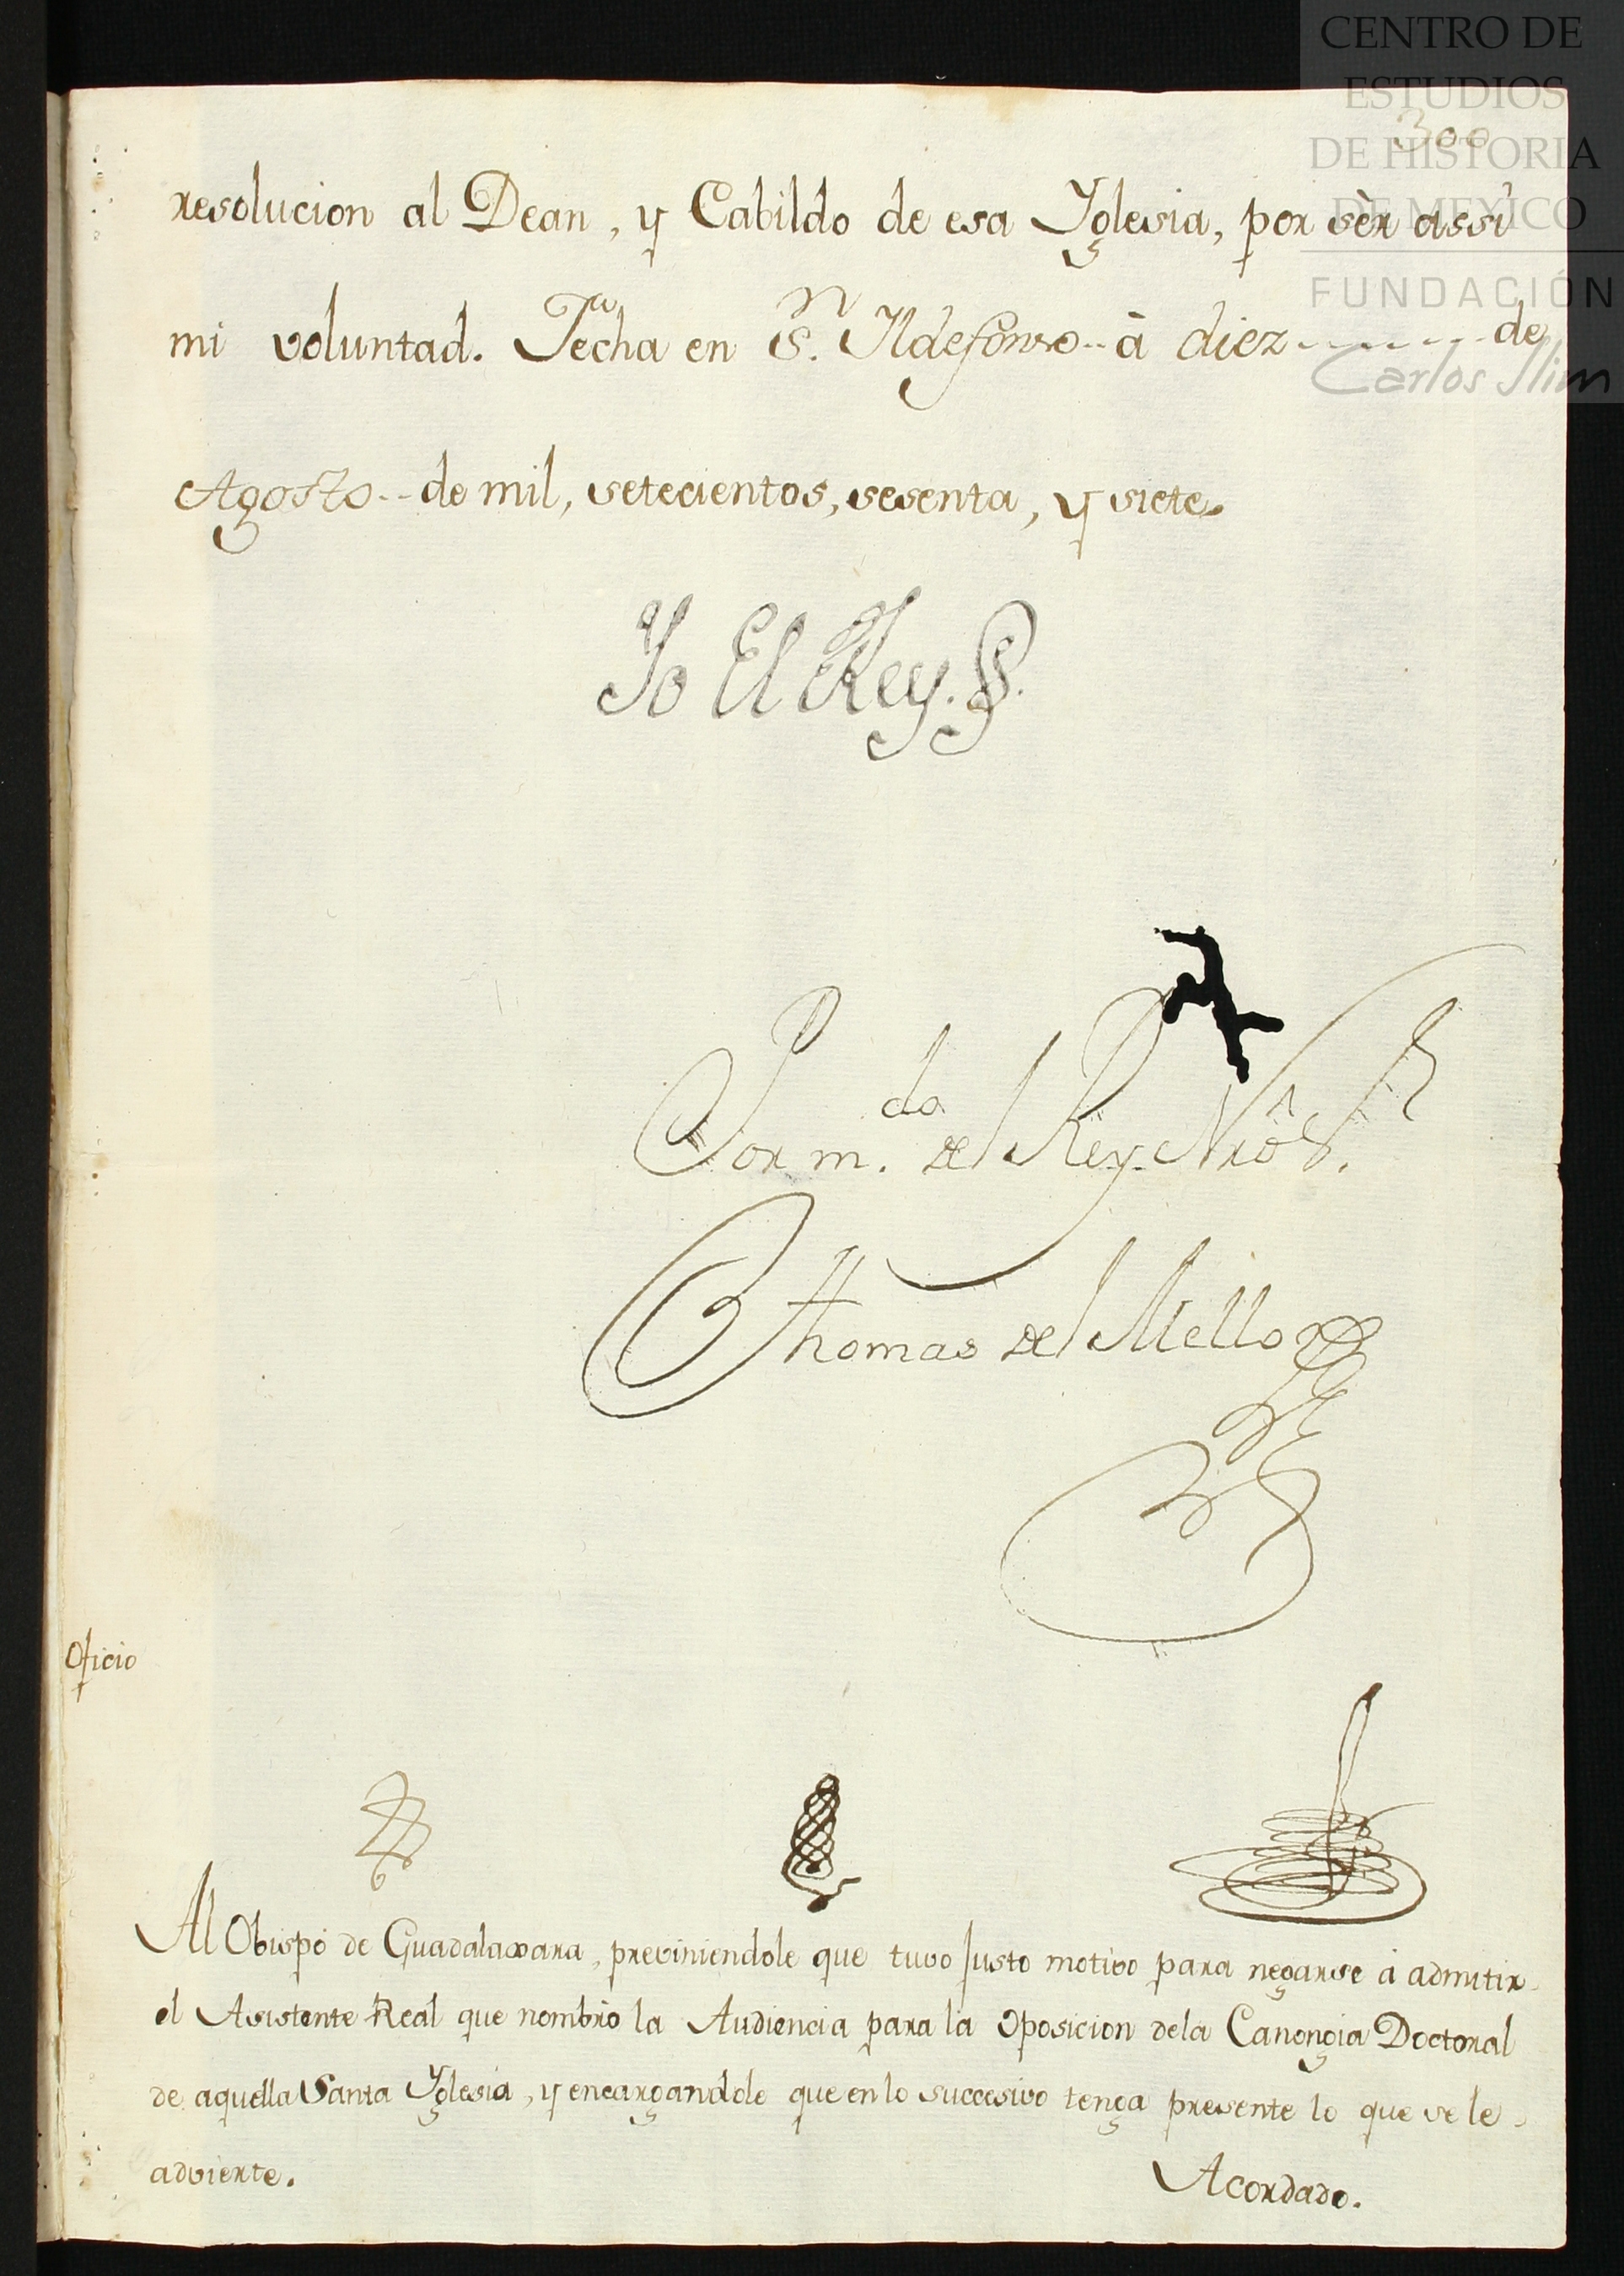 CENTRO DE
ESTUDIOS
DE HISTORIA
DE MEXICO
FUNDACIÓN
Carlos Slim
300
resolucion al Dean, y Cabildo de esa Yglesia, por sèr assi
mi voluntad. Fecha en Sn. Yldefonso -- à diez - - - - - - - de
Agosto -- de mil, setecientos, sesenta, y siete.
Yo El Rey.
Por m.do del Rey Nrô Sr.
Thomas del Mello
Oficio
Al Obispo de Guadalaxara, previniendole que tuvo justo motivo para negarse à admitir
el Asistente Real que nombrò la Audiencia para la Oposicion dela Canongia Doctoral
de aquella Santa Yglesia, y encargandole que en lo succesivo tenga presente lo que se le
advierte.
Acordado.